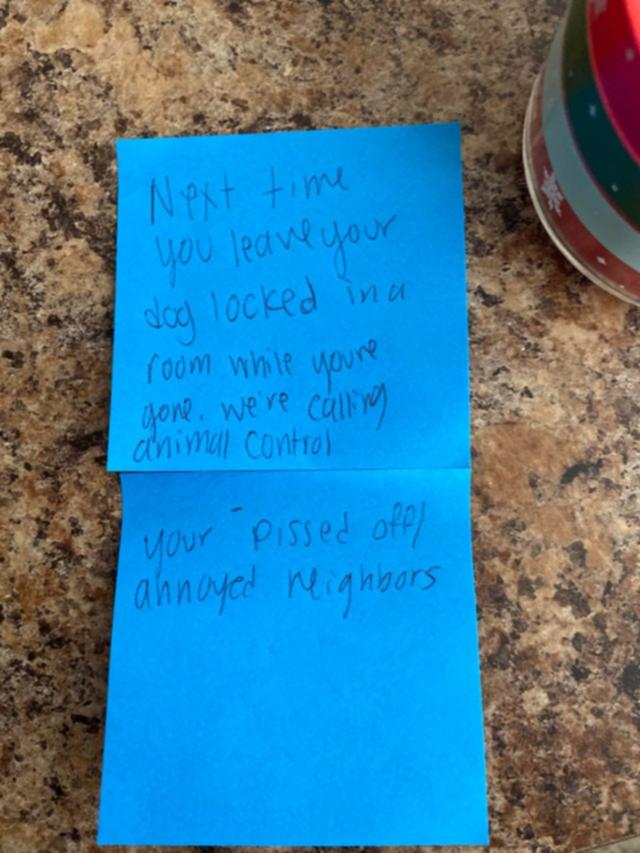 Next time
you leave your
dog locked in a
room while youre
gone. we're calling
animal control
your - pissed off/
annoyed neighbors